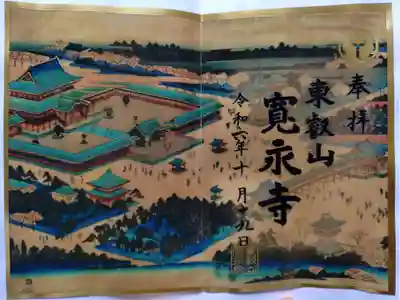 奉拝
東叡山
寛永寺
令和六年十月十九日